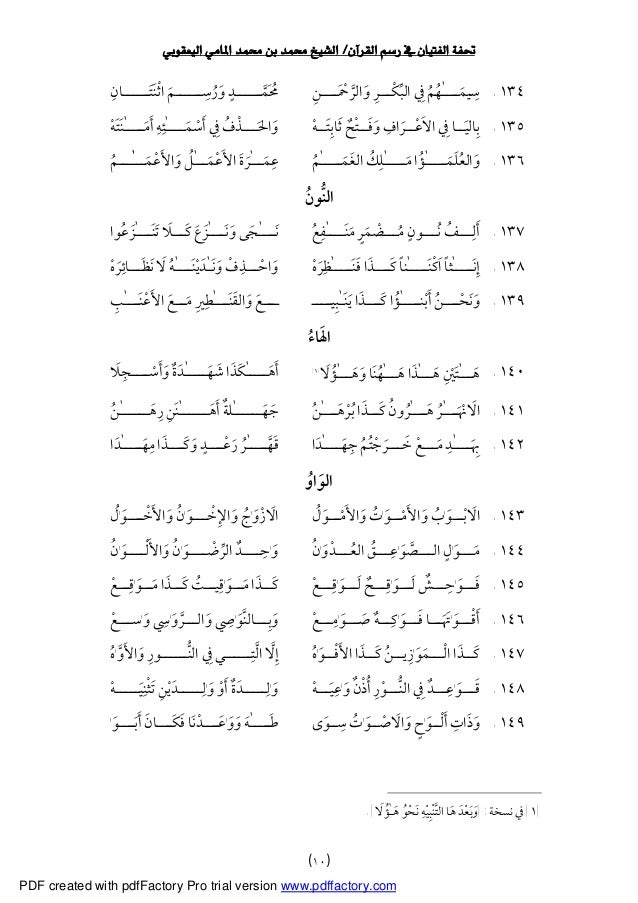 تحفة الفتيان في رسم القرآن/ الشيخ محمد بن محمد المامي اليعقوبي
١٣٤ . سِيمَٰهُمُ فِي البِّكْرِ وَالرَّحْمَٰنِ مُحَمَّدٍ وَرُسِمَ اثْنَتَانِ
١٣٥ . بِالْيَا فِي الأَعْرَافِ وَفَتْحٌ ثَابِتَهْ وَالحَذْفُ فِي أَسْمَٰئِهِ أَمَٰنَتَهْ
١٣٦ . وَالعُلَمَٰؤُا مَٰلِكُ الغَمَٰمُ عِمَٰرَةَ الأَعْمَٰلُ وَالأَعْمَٰمُ
النُّونُ
١٣٧ . أَلِفُ نُونٍ مُضْمَرٍ مَنَٰفِعُ نَجَٰى وَنَٰزَعَ كَلَا تَنَٰزَعُوا
١٣٨ . إِنَٰثاً اكْنَٰناً كَذَا فَنَٰظِرَهْ وَاحْذِفْ وَنَٰدَيْنَٰهُ لَا نَظَائِرَهْ
١٣٩ . وَنَحْنُ أَبْنَٰؤُا كَذَا يَنَٰبِيـ ـعَ وَالقَنَٰطِيرِ مَعَ الأَعْنَٰبِ
الهَاءُ
١٤٠ . هَٰتَيْنِ هَٰذَا هَٰهُنَا وَهَٰؤُلَا ١ أَهَٰكَذَا شَهَٰدَةٌ وَأَسْجِلَا
١٤١ . الَانْهَٰرُ هَٰرُونُ كَذَا بُرْهَٰنُ جَهَٰلَةٌ أَهَٰنَنِ رِهَٰنُ
١٤٢ . بِهَٰدِ مَعْ خَرَجْتُمُ جِهَٰدَا قَهَّٰرُ رَعْدٍ وَكَذَا مِهَٰدَا
الوَاوُ
١٤٣ . الَابْوَٰبُ وَالأَمْوَٰتُ وَالأَمْوَٰلُ الَازْوَٰجُ وَالإِخْوَٰنُ وَالأَخْوَٰلُ
١٤٤ . مَوَٰلِ الصَّوَٰعِقُ العُدْوَٰنُ وَٰحِدُ الرِّضْوَٰنُ وَالأَلْوَٰنُ
١٤٥ . فَوَٰحِشٌ لَوَٰقِحٌ لَوَٰقِعْ كَذَا مَوَٰقِيتُ كَذَا مَوَٰقِعْ
١٤٦ . أَقْوَٰتَهَا فَوَٰكِهٌ صَوَٰمِعْ وَبِالنَّوَٰصِي وَالرَّوَٰسِي وَٰسِعْ
١٤٧ . كَذَا الْمَوَٰزِينُ كَذَا الأَفْوَٰهُ إِلَّا الَّتِي فِي النُّورِ وَالأَوَّٰهُ
١٤٨ . قَوَٰعِدُ فِي النُّورِ أُذْنٌ وَٰعِيَهْ وَٰلِدَةٌ أَوْ وَٰلِدَيْنِ تَثْنِيَهْ
١٤٩ . وَذَاتِ أَلْوَٰحٍ وَالَاصْوَٰتُ سِوَى طَهَٰ وَوَٰعَدْنَا فَكَانَ أَبَوَا
(١) في نسخة : (وَبَعْدَ هَا التَّنْبِيْهِ نَحْوُ هَٰؤُلَا) .
(١٠)
PDF created with pdfFactory Pro trial version www.pdffactory.com